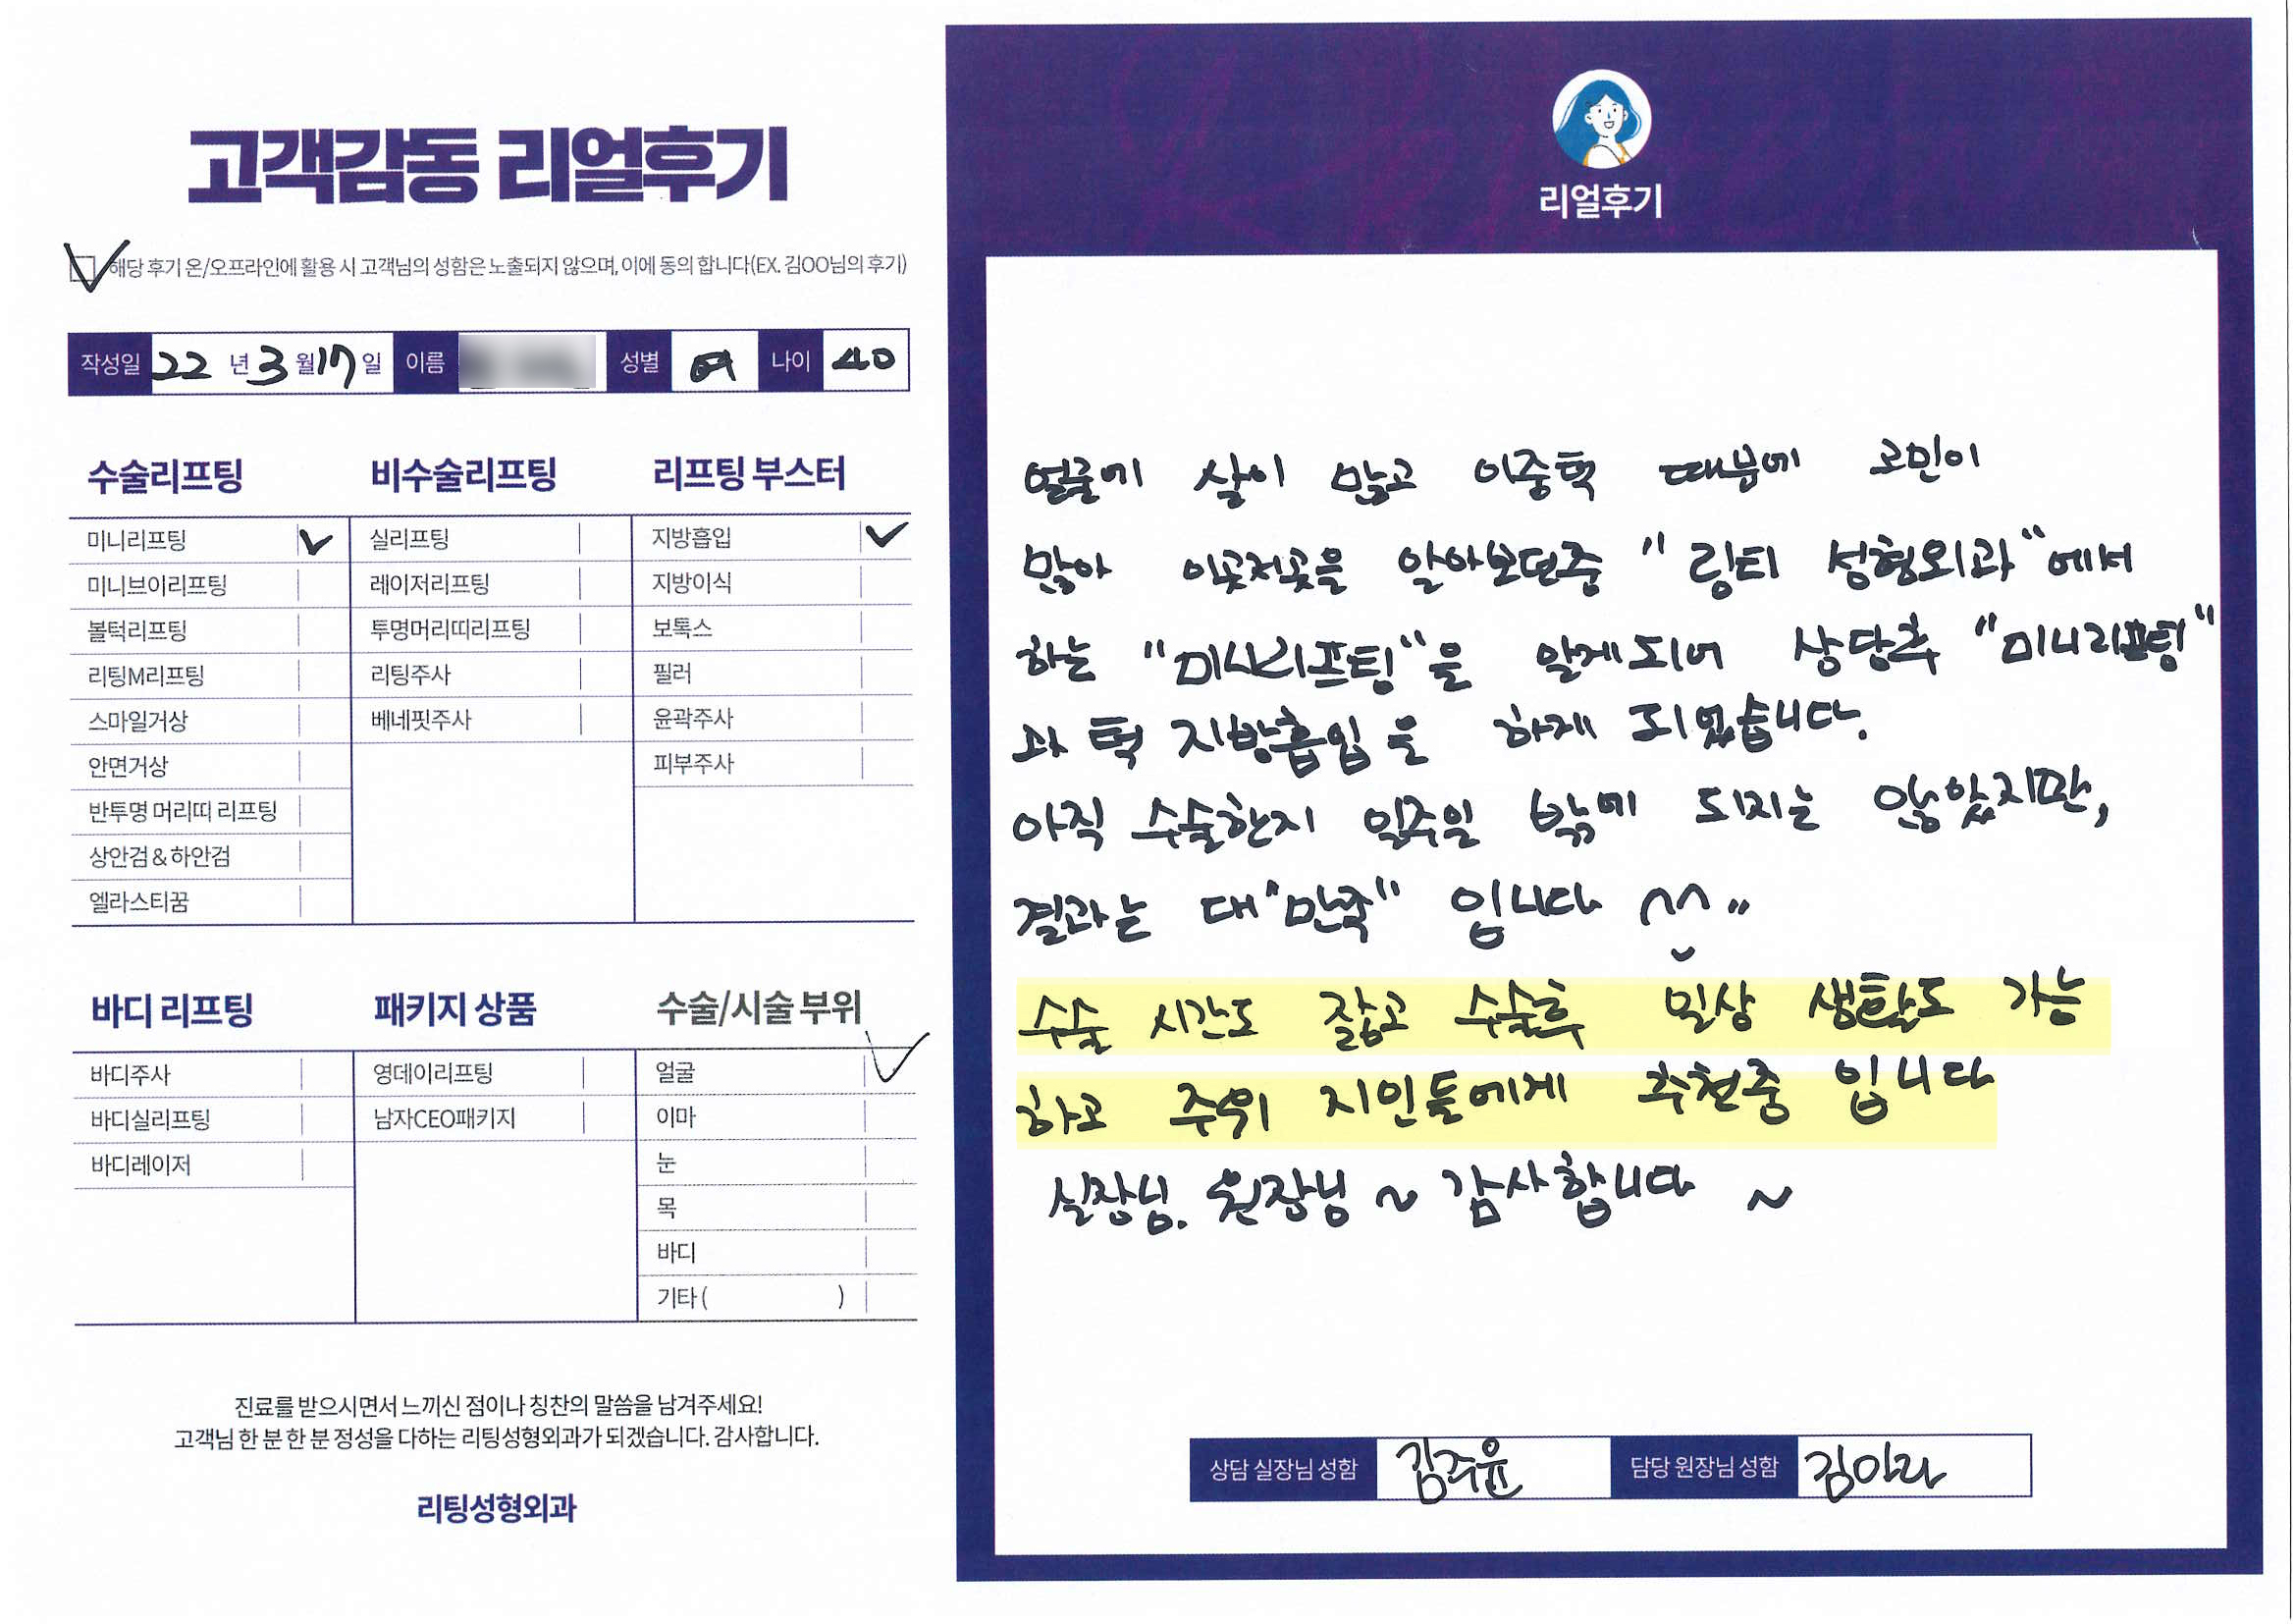 고객감동 리얼후기
해당 후기 온/오프라인에 활용 시 고객님의 성함은 노출되지 않으며, 이에 동의 합니다(EX. 김OO님의 후기)
작성일 22 년 3 월 17 일 이름 성별 여 나이 40
수술리프팅
미니리프팅
미니브이리프팅
볼턱리프팅
리팅M리프팅
스마일거상
안면거상
반투명 머리띠 리프팅
상안검 & 하안검
엘라스티꿈
비수술리프팅
실리프팅
레이저리프팅
투명머리띠리프팅
리팅주사
베네핏주사
리프팅 부스터
지방흡입
지방이식
보톡스
필러
윤곽주사
피부주사
바디 리프팅
바디주사
바디실리프팅
바디레이저
패키지 상품
영데이리프팅
남자CEO패키지
수술/시술 부위
얼굴
이마
눈
목
바디
기타 ( )
진료를 받으시면서 느끼신 점이나 칭찬의 말씀을 남겨주세요!
고객님 한 분 한 분 정성을 다하는 리팅성형외과가 되겠습니다. 감사합니다.
리팅성형외과
리얼후기
얼굴에 살이 많고 이중턱 때문에 고민이
많아 이곳저곳을 알아보던중 "링티 성형외과"에서
하는 "미니리프팅"을 알게되어 상담후 "미니리프팅"
과 턱 지방흡입을 하게 되었습니다.
아직 수술한지 일주일 밖에 되지는 않았지만,
결과는 대"만족" 입니다 ^^
수술 시간도 짧고 수술후 일상 생활도 가능
하고 주위 지인들에게 추천중 입니다
실장님. 원장님 ~ 감사합니다 ~
상담 실장님 성함 김주윤 담당 원장님 성함 김아라